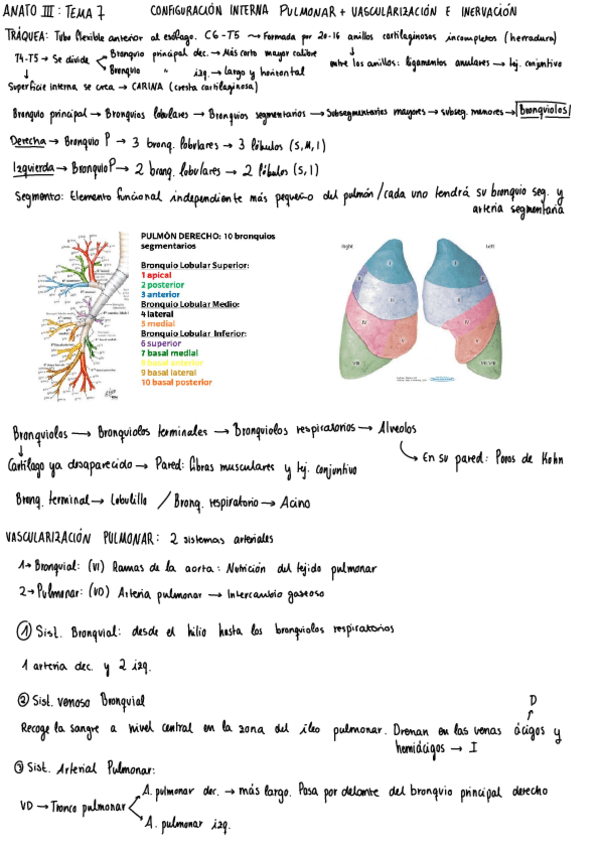 ANATO III: TEMA 7 CONFIGURACIÓN INTERNA PULMONAR + VASCULARIZACIÓN E INERVACIÓN
TRÁQUEA: Tubo flexible anterior al esófago. C6-T5 → Formada por 20-16 anillos cartilaginosos incompletos (herradura)
T4-T5 → Se divide Bronquio principal dec. → Más corto mayor calibre
Bronquio " izq. → largo y horizontal
entre los anillos: ligamentos anulares → tej. conjuntivo
Superficie interna se crea → CARINA (cresta cartilaginosa)
Bronquio principal → Bronquios lobulares → Bronquios segmentarios → Subsegmentarios mayores → subseg. menores → Bronquiolos
Derecha → Bronquio P → 3 bronq. lobulares → 3 lóbulos (S, M, I)
Izquierda → Bronquio P → 2 bronq. lobulares → 2 lóbulos (S, I)
Segmento: Elemento funcional independiente más pequeño del pulmón / cada uno tendrá su bronquio seg. y
arteria segmentaria
PULMÓN DERECHO: 10 bronquios
segmentarios
Bronquio Lobular Superior:
1 apical
2 posterior
3 anterior
Bronquio Lobular Medio:
4 lateral
5 medial
Bronquio Lobular Inferior:
6 superior
7 basal medial
8 basal anterior
9 basal lateral
10 basal posterior
Right Left
Bronquiolos → Bronquiolos terminales → Bronquiolos respiratorios → Alveolos
Cartílago ya desaparecido → Pared: fibras musculares y tej. conjuntivo
En su pared: Poros de Kohn
Bronq. terminal → Lobulillo / Bronq. respiratorio → Acino
VASCULARIZACIÓN PULMONAR: 2 sistemas arteriales
1→ Bronquial: (VI) Ramas de la aorta: Nutrición del tejido pulmonar
2→ Pulmonar: (VD) Arteria pulmonar → Intercambio gaseoso
① Sist. Bronquial: desde el hilio hasta los bronquiolos respiratorios
1 arteria dec. y 2 izq.
② Sist. venoso Bronquial
D
Recoge la sangre a nivel central en la zona del íleo pulmonar. Drenan en las venas ácigos y
hemiácigos → I
③ Sist. Arterial Pulmonar:
A. pulmonar dec. → más largo. Pasa por delante del bronquio principal derecho
VD → Tronco pulmonar
A. pulmonar izq.